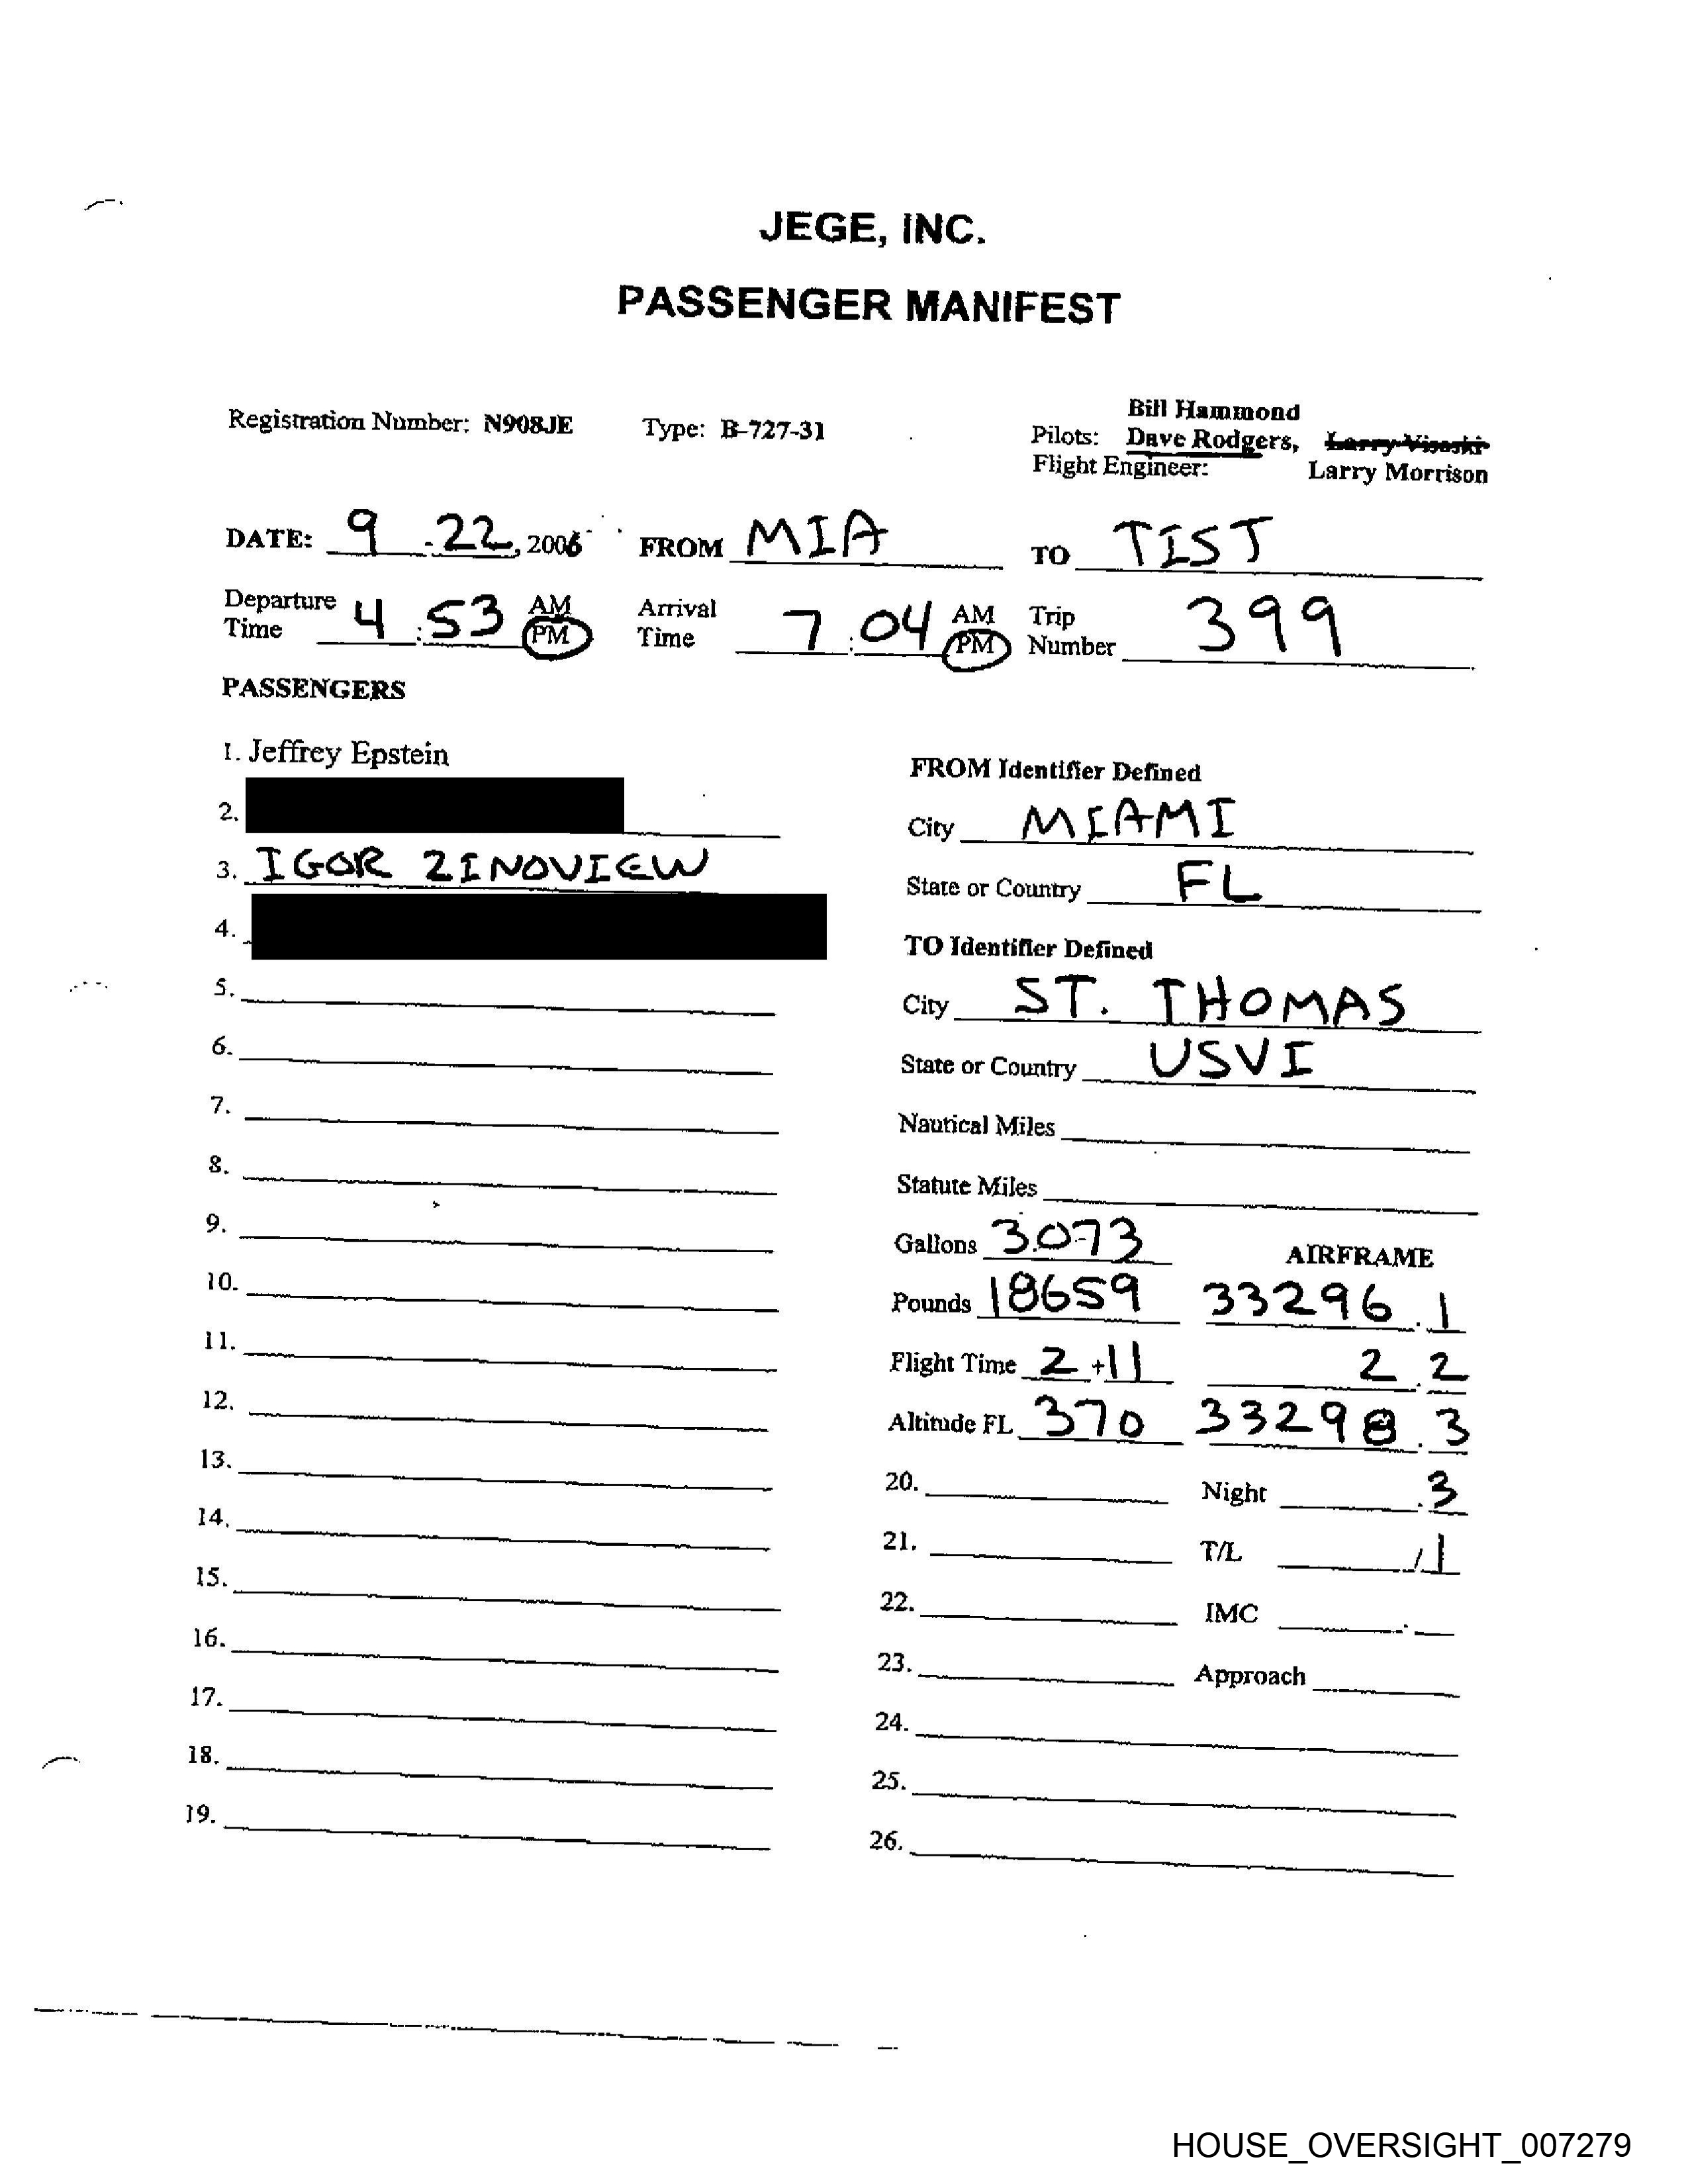 JEGE, INC.
PASSENGER MANIFEST
Registration Number: N908JE Type: B-727-31
Bill Hammond
Pilots: Dave Rodgers, Larry Visoski
Flight Engineer: Larry Morrison
DATE: 9 - 22, 2006 FROM MIA TO TIST
Departure Time 4 : 53 AM PM Arrival Time 7 : 04 AM PM Trip Number 399
PASSENGERS
1. Jeffrey Epstein
2.
3. IGOR ZINOVIEW
4.
5.
6.
7.
8.
9.
10.
11.
12.
13.
14.
15.
16.
17.
18.
19.
FROM Identifier Defined
City MIAMI
State or Country FL
TO Identifier Defined
City ST. THOMAS
State or Country USVI
Nautical Miles
Statute Miles
Gallons 3073 AIRFRAME
Pounds 18659 33296.1
Flight Time 2 + 11 2.2
Altitude FL 370 33298.3
20. Night .3
21. T/L /1
22. IMC .
23. Approach
24.
25.
26.
HOUSE_OVERSIGHT_007279